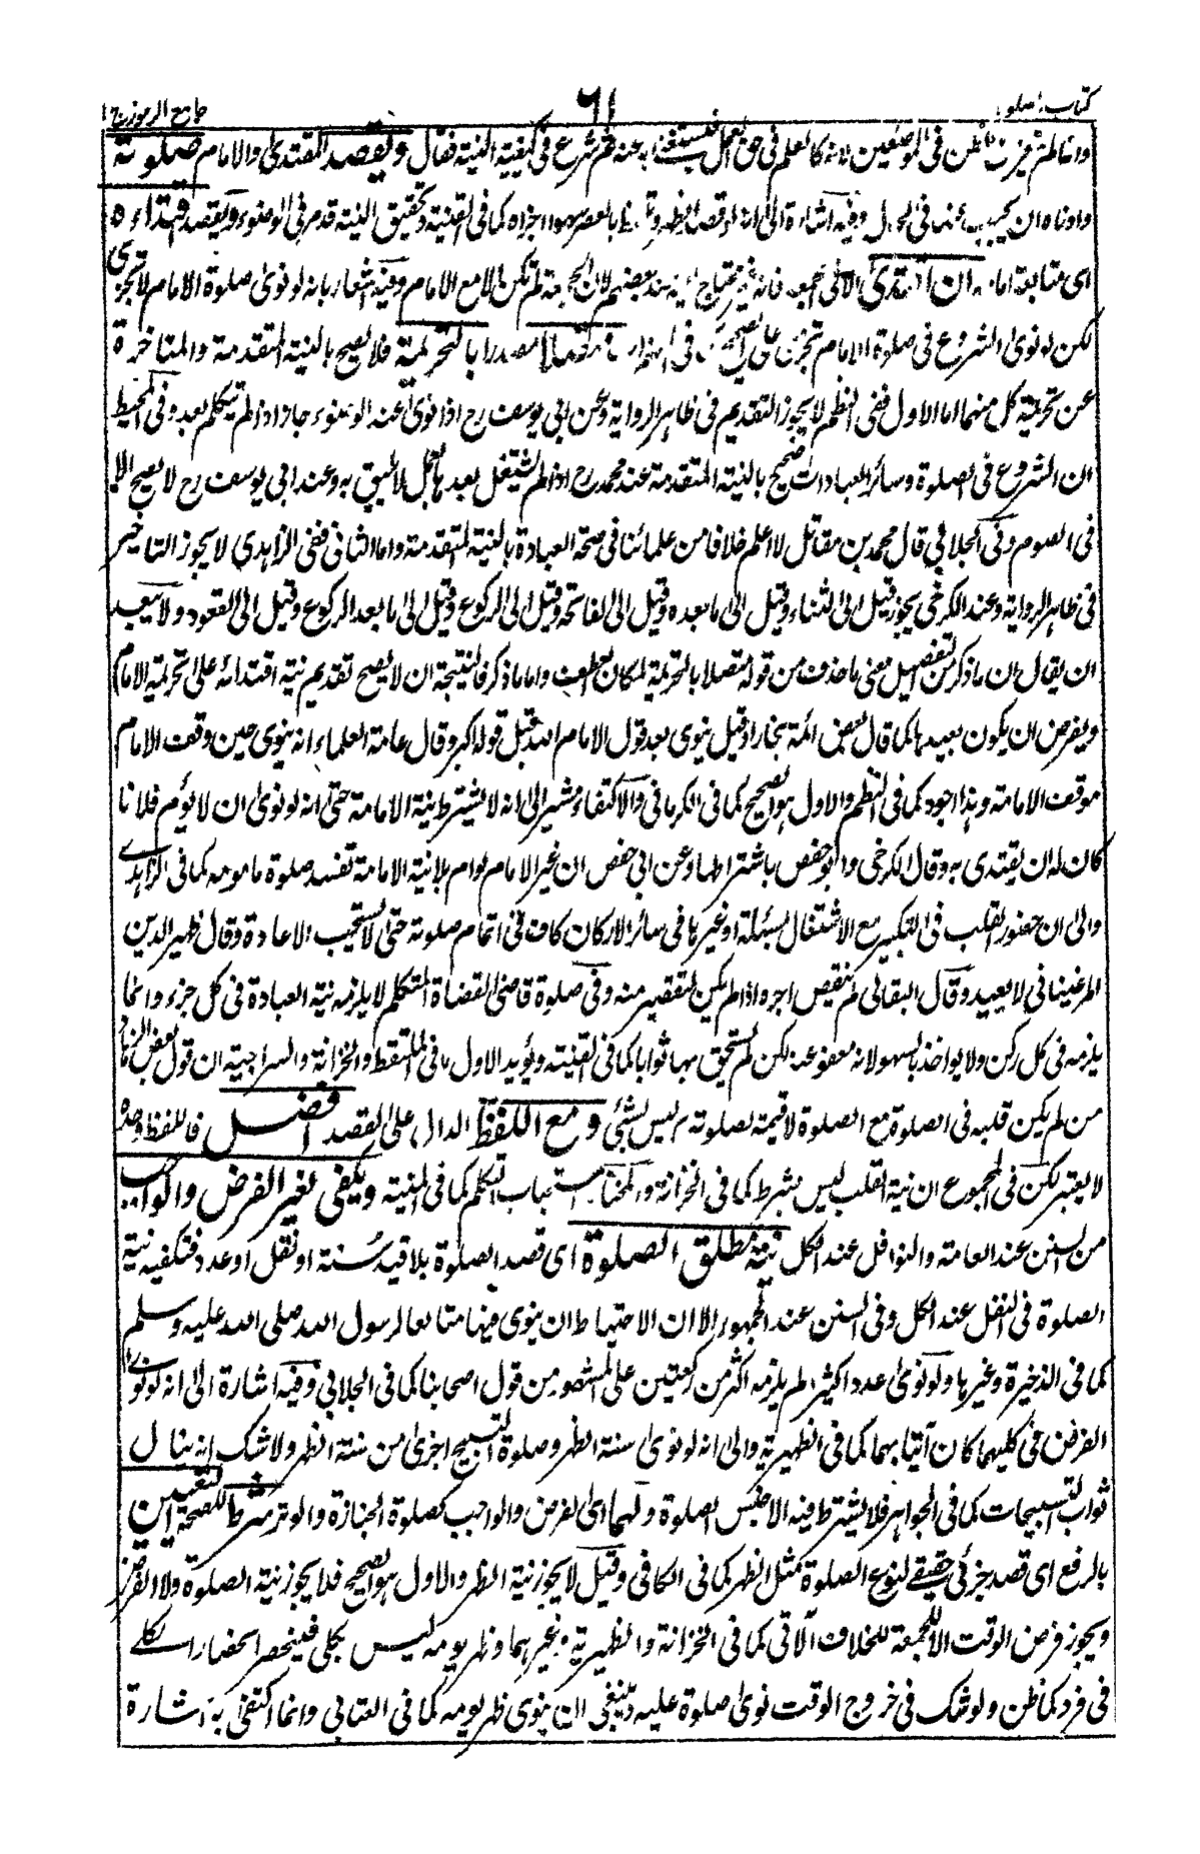 كتاب الصلوة
٦١
جامع الرموز ج ١
وانما لم يفرض في الموضعين لانه كالعلم في حق العمل فيستغنى به عنه ثم شرع في كيفية النية فقال ويقصد المقتدى والامام صلوته
وادناه ان يجيب عنها في الحال وفيه اشارة الى انه لو قصد الظهر وتلفظ بالعصر سهوا اجزاه كما في القنية وتحقيق النية قد مر في الوضوء ويقصد اقتداءه
اى متابعة امامه ان اقتدى الا في الجمعة فانه غير محتاج اليه عند بعضهم لان الجمعة لم تكن الا مع الامام وفيه اشعار بانه لو نوى صلوة الامام لا تجزى
لكن لو نوى الشروع في صلوة الامام تجزى على الصحيح في متصلا قصدا بالتحريمة فلا يصح بالنية المتقدمة والمتاخرة
عن تحريمة كل منهما اما الاول ففى النظم لا يجوز التقديم في ظاهر الرواية وعن ابي يوسف رح اذا نوى عند الوضوء جاز اذا لم يتكلم بعد وفى المحيط
ان الشروع في الصلوة وسائر العبادات صحيح بالنية المتقدمة عند محمد رح اذا لم يشتغل بعدها بعمل لا يليق به وعند ابي يوسف رح لا يصح الا
فى الصوم وفى الجلابي قال محمد بن مقاتل لا اعلم خلافا من علمائنا فى صحة العبادة بالنية المتقدمة واما الثانى ففى الزاهدى لا يجوز التاخير
فى ظاهر الرواية وعند الكرخى يجوز قيل الى الثناء وقيل الى ما بعده وقيل الى الفاتحة وقيل الى الركوع وقيل الى ما بعد الركوع وقيل الى القعود ولا يبعد
ان يقال ان ما ذكر من التفصيل معنى ما حذف من قوله متصلا بالتحريمة لمكان العطف واما ما ذكر فالنتيجة ان لا يصح تقديم نية اقتدائه على تحريمة الامام
ويفرض ان يكون بعيدها كما قال بعض ائمة بخارا وقيل ينوى بعد قول الامام الله قبل قوله اكبر وقال عامة العلماء انه ينوى حين وقف الامام
موقف الامامة وهذا اجود كما فى النظم والاول هو الصحيح كما فى الكرمانى والاكتفاء مشير الى انه لا يشترط نية الامامة حتى انه لو نوى ان لا يؤم فلانا
كان له ان يقتدى به وقال الكرخى وابو حفص باشتراطها وعن ابى حفص ان غير الامام لو ام بلا نية الامامة تفسد صلوة مامومه كما فى الزاهدى
والى ان حضور القلب فى التكبير مع الاشتغال بمسئلة او غيرها فى سائر الاركان كاف فى اتمام صلوته حتى لا يستحب الاعادة وقال ظهير الدين
المرغينانى لا يعيد وقال البقالى لم ينقص اجره اذا لم يكن لتقصير منه وفى صلوة قاضى القضاة المتكلم لا يلزمه نية العبادة فى كل جزء وانما
يلزمه فى كل ركن ولا يواخذ بالسهو لانه معفو عنه لكن لم يستحق بها ثوابا كما فى القنية ويؤيد الاول ما فى الملتقط والخزانة والسراجية ان قول بعض الزهاد
من لم يكن قلبه فى الصلوة مع الصلوة لا قيمة لصلوته ليس بشئ ومع اللفظ الدال على القصد افضل فاللفظ وحده
لا يعتبر لكن فى المجموع ان نية القلب ليس بشرط كما فى الخزانة والمختار استحباب التكلم كما فى المنية ويكفى لغير الفرض والواجب
من السنن عند العامة والنوافل عند الكل نية مطلق الصلوة اى قصد الصلوة بلا قيد سنة او نفل او عدد فتكفيه نية
الصلوة فى النفل عند الكل وفى السنن عند الجمهور الا ان الاحتياط ان ينوى فيها متابعا لرسول الله صلى الله عليه وسلم
كما فى الذخيرة وغيرها ولو نوى عددا كثيرا لم يلزمه اكثر من ركعتين على المشهور من قول اصحابنا كما فى الجلابي وفيه اشارة الى انه لو نوى
الفرض فى كليهما كان آتيا بهما كما فى الظهيرية والى انه لو نوى سنة الظهر وصلوة التسبيح اجزى من سنة الظهر ولا شك انه ينال
ثواب التسبيحات كما فى الجواهر فلا يشترط فيه الا جنس الصلوة ولهما اى الفرض والواجب كصلوة الجنازة والوتر شرط للصحة التعيين
بالرفع اى قصد جزئى حقيقى لنوع الصلوة كمثل الظهر كما فى الكافى وقيل لا يجوز نية الظهر والاول هو الصحيح فلا يجوز نية الصلوة ولا الفرض
ويجوز فرض الوقت الا للجمعة للخلاف الآتى كما فى الخزانة والظهيرية وغيرهما وظهر يومه ليس بجلى فينحصر انحصار الكلى
فى فرد كما ظن ولو شك فى خروج الوقت نوى صلوة عليه وينبغى ان ينوى ظهر يومه كما فى العتابي وانما اكتفى به اشارة